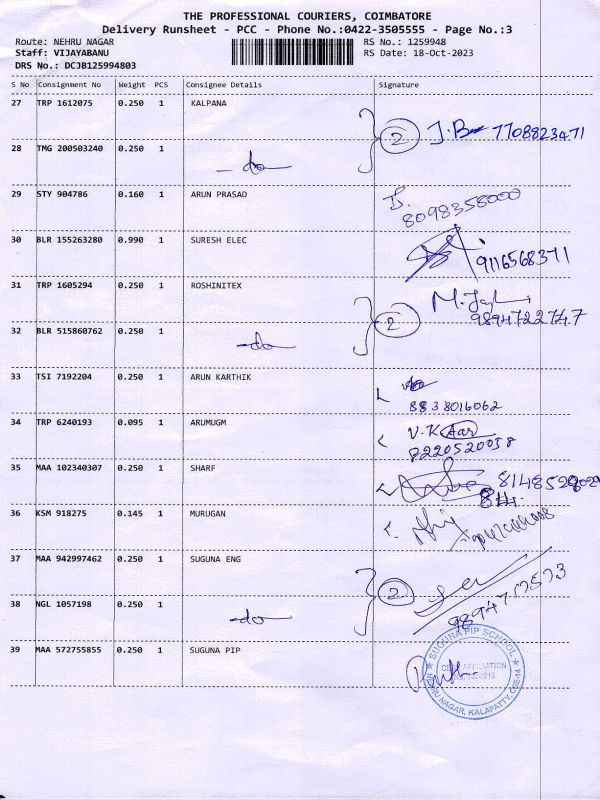 THE PROFESSIONAL COURIERS, COIMBATORE
Delivery Runsheet - PCC - Phone No.:0422-3505555 - Page No.:3
Route: NEHRU NAGAR RS No.: 1259948
Staff: VIJAYABANU RS Date: 18-Oct-2023
DRS No.: DCJB125994803
S No Consignment No Weight PCS Consignee Details Signature
27 TRP 1612075 0.250 1 KALPANA
2 7708823471
28 TMG 200503240 0.250 1 -do-
29 STY 904786 0.160 1 ARUN PRASAD
8098358000
30 BLR 155263280 0.990 1 SURESH ELEC
9116568371
31 TRP 1605294 0.250 1 ROSHINITEX
2 9894722747
32 BLR 515860762 0.250 1 -do-
33 TSI 7192204 0.250 1 ARUN KARTHIK
8838016062
34 TRP 6240193 0.095 1 ARUMUGM
V.K
8220520038
35 MAA 102340307 0.250 1 SHARF
36 KSM 918275 0.145 1 MURUGAN
37 MAA 942997462 0.250 1 SUGUNA ENG
2
38 NGL 1057198 0.250 1 -do-
39 MAA 572755855 0.250 1 SUGUNA PIP
SUGUNA PIP SCHOOL
AFFILIATION
NEHRU NAGAR, KALAPATTY, CBE-14